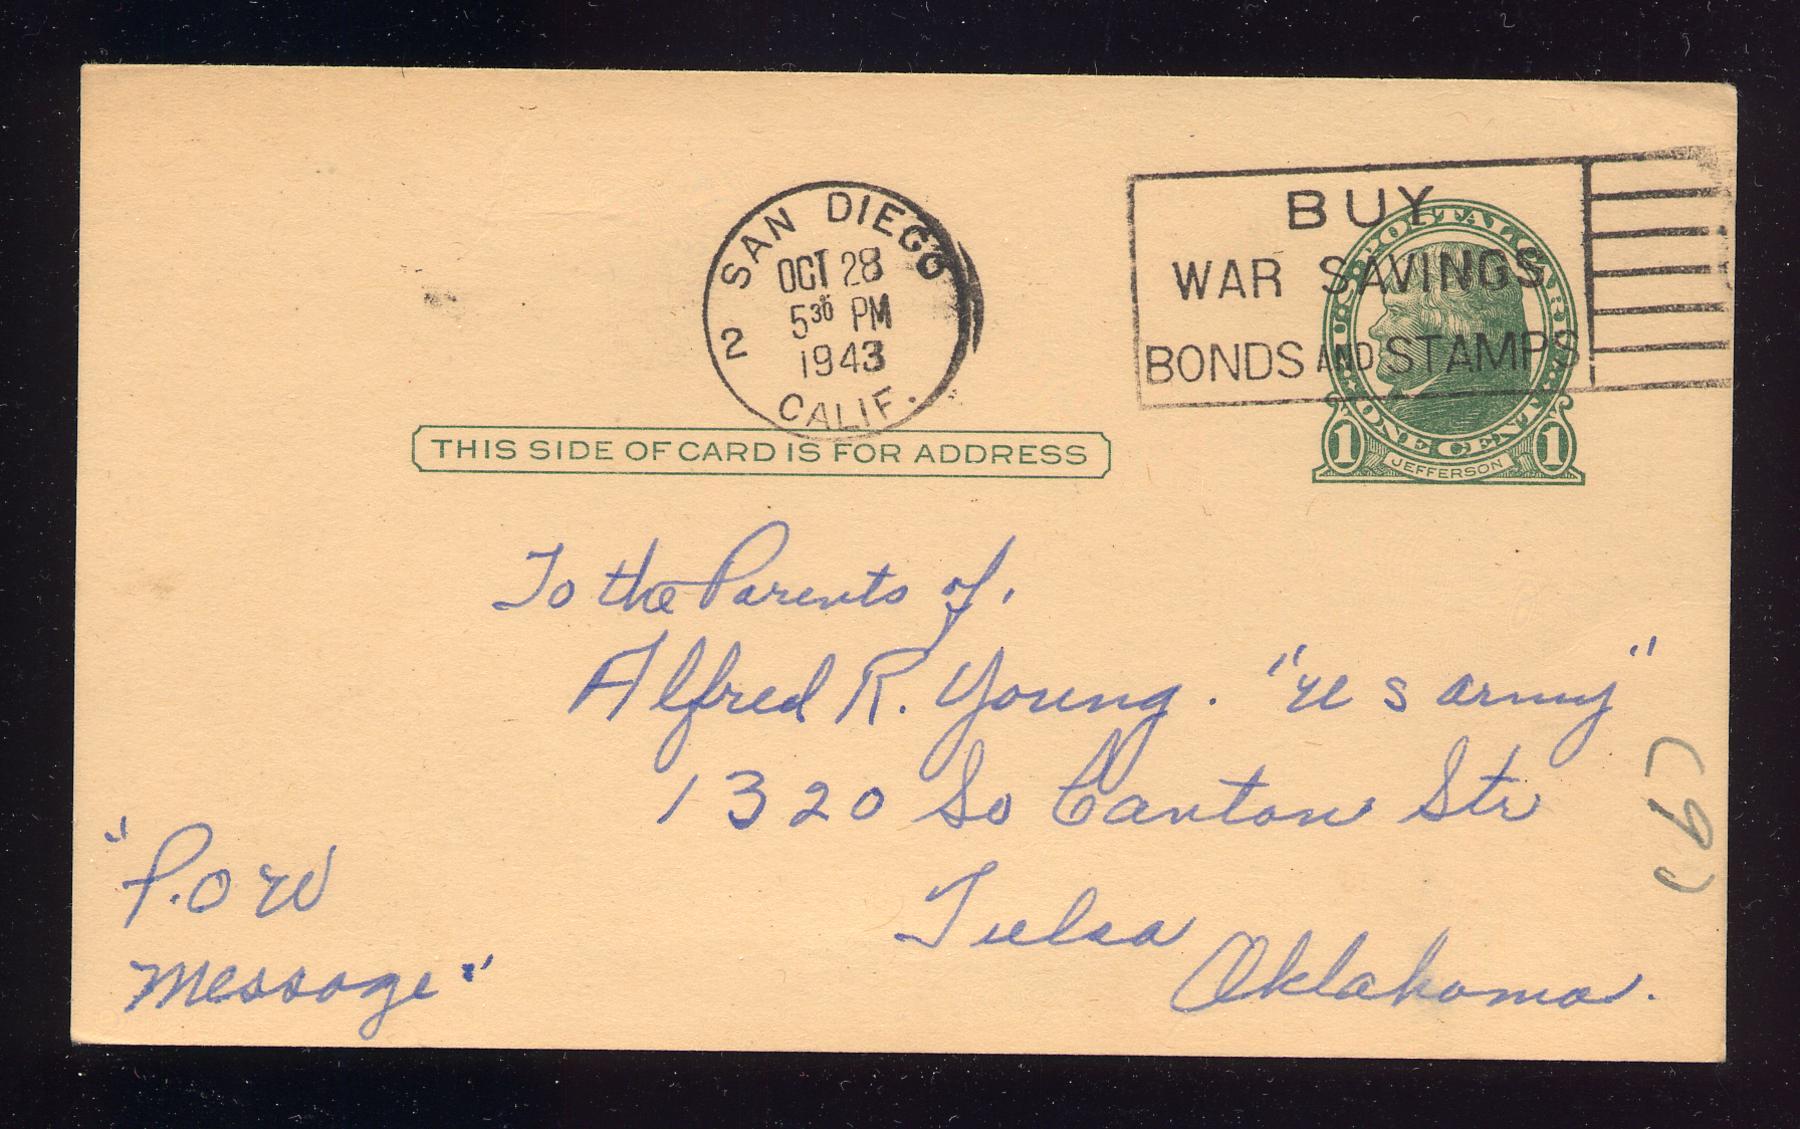 2 SAN DIEGO
OCT 28
5 30 PM
1943
CALIF.
BUY
WAR SAVINGS
BONDS AND STAMPS
U.S. POSTAL CARD
ONE CENT
1 JEFFERSON 1
THIS SIDE OF CARD IS FOR ADDRESS
To the Parents of,
Alfred R. Young. "U S Army"
1320 So Canton Str
Tulsa
Oklahoma.
"P.O W
Message"
(9)